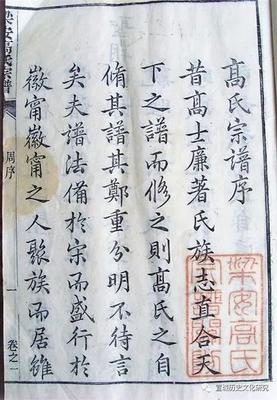 高氏宗譜序
昔高士廉著氏族志直合天
下之譜而修之則高氏之自
脩其譜其鄭重分明不待言
矣夫譜法備於宋而盛行於
徽甯徽甯之人聚族而居雖
梁安高氏宗譜
周序
一
卷之一
梁安高氏
宣城历史文化研究